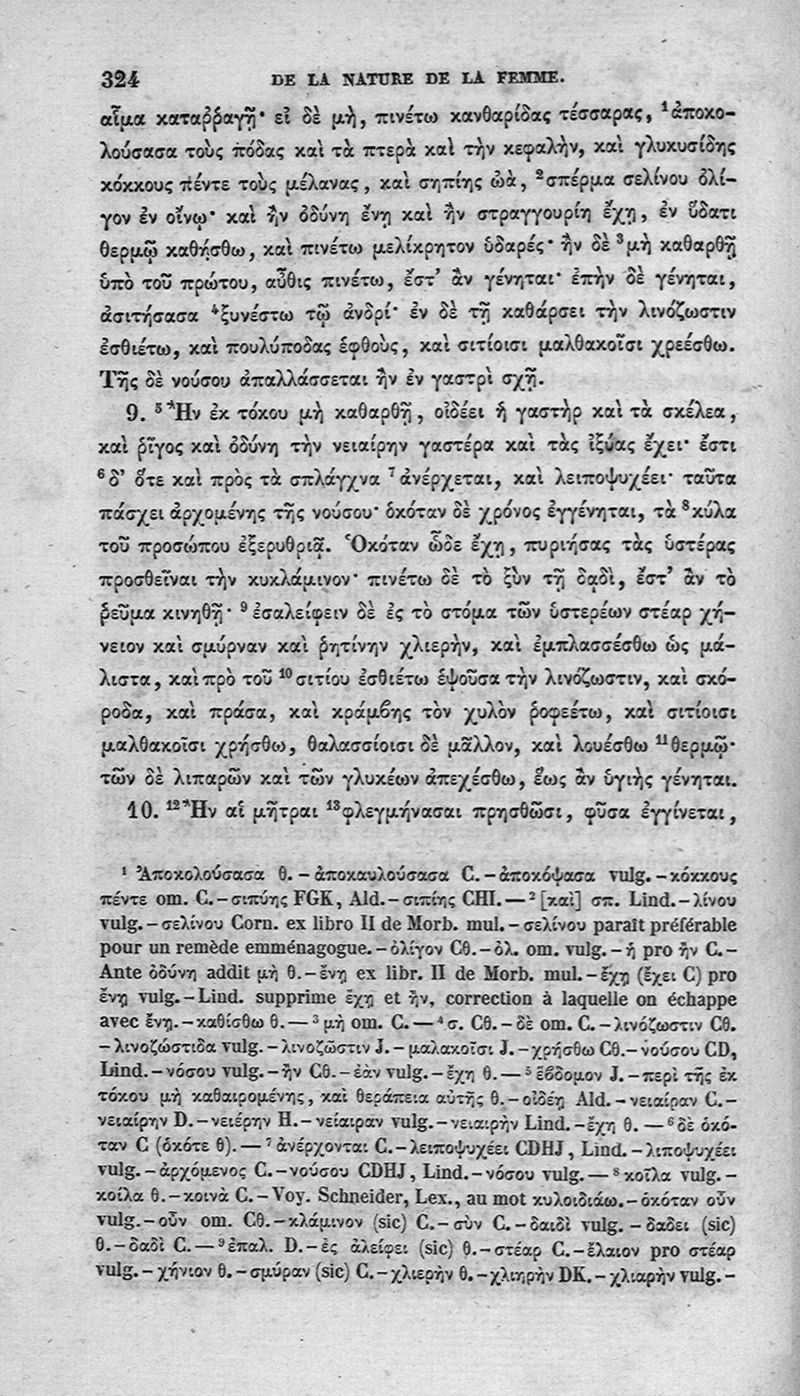 324 DE LA NATURE DE LA FEMME.
αἷμα καταῤῥαγῇ· εἰ δὲ μὴ, πινέτω κανθαρίδας τέσσαρας, ¹ἀποκο-
λούσασα τοὺς πόδας καὶ τὰ πτερὰ καὶ τὴν κεφαλὴν, καὶ γλυκυσίδης
κόκκους πέντε τοὺς μέλανας, καὶ σηπίης ὠὰ, ²σπέρμα σελίνου ὀλί-
γον ἐν οἴνῳ· καὶ ἢν ὀδύνη ἔνῃ καὶ ἢν στραγγουρίη ἔχῃ, ἐν ὕδατι
θερμῷ καθήσθω, καὶ πινέτω μελίκρητον ὑδαρές· ἢν δὲ ³μὴ καθαρθῇ
ὑπὸ τοῦ πρώτου, αὖθις πινέτω, ἔστ’ ἂν γένηται· ἐπὴν δὲ γένηται,
ἀσιτήσασα ⁴ξυνέστω τῷ ἀνδρί· ἐν δὲ τῇ καθάρσει τὴν λινόζωστιν
ἐσθιέτω, καὶ πουλύποδας ἑφθοὺς, καὶ σιτίοισι μαλθακοῖσι χρεέσθω.
Τῆς δὲ νούσου ἀπαλλάσσεται ἢν ἐν γαστρὶ σχῇ.
9. ⁵Ἢν ἐκ τόκου μὴ καθαρθῇ, οἰδέει ἡ γαστὴρ καὶ τὰ σκέλεα,
καὶ ῥῖγος καὶ ὀδύνη τὴν νειαίρην γαστέρα καὶ τὰς ἰξύας ἔχει· ἔστι
⁶δ’ ὅτε καὶ πρὸς τὰ σπλάγχνα ⁷ἀνέρχεται, καὶ λειποψυχέει· ταῦτα
πάσχει ἀρχομένης τῆς νούσου· ὁκόταν δὲ χρόνος ἐγγένηται, τὰ ⁸κύλα
τοῦ προσώπου ἐξερυθριᾷ. Ὁκόταν ὧδε ἔχῃ, πυριήσας τὰς ὑστέρας
προσθεῖναι τὴν κυκλάμινον· πινέτω δὲ τὸ ξὺν τῇ δᾳδὶ, ἔστ’ ἂν τὸ
ῥεῦμα κινηθῇ· ⁹ἐσαλείφειν δὲ ἐς τὸ στόμα τῶν ὑστερέων στέαρ χή-
νειον καὶ σμύρναν καὶ ῥητίνην χλιερὴν, καὶ ἐμπλασσέσθω ὡς μά-
λιστα, καὶ πρὸ τοῦ ¹⁰σιτίου ἐσθιέτω ἑψοῦσα τὴν λινόζωστιν, καὶ σκό-
ροδα, καὶ πράσα, καὶ κράμϐης τὸν χυλὸν ῥοφεέτω, καὶ σιτίοισι
μαλθακοῖσι χρήσθω, θαλασσίοισι δὲ μᾶλλον, καὶ λουέσθω ¹¹θερμῷ·
τῶν δὲ λιπαρῶν καὶ τῶν γλυκέων ἀπεχέσθω, ἕως ἂν ὑγιὴς γένηται.
10. ¹²Ἢν αἱ μῆτραι ¹³φλεγμήνασαι πρησθῶσι, φῦσα ἐγγίνεται,
¹ Ἀποκολούσασα θ. – ἀποκαυλούσασα C. – ἀποκόψασα vulg. – κόκκους
πέντε om. C. – σιπύης FGK, Ald. – σιπίης CHI. — ² [καὶ] σπ. Lind. – λίνου
vulg. – σελίνου Corn. ex libro II de Morb. mul. – σελίνου paraît préférable
pour un remède emménagogue. – ὀλίγον Cθ. – ὀλ. om. vulg. – ἡ pro ἢν C. –
Ante ὀδύνη addit μὴ θ. – ἔνῃ ex libr. II de Morb. mul. – ἔχῃ (ἔχει C) pro
ἔνῃ vulg. – Lind. supprime ἔχῃ et ἢν, correction à laquelle on échappe
avec ἔνῃ. – καθίσθω θ. — ³ μὴ om. C. — ⁴ σ. Cθ. – δὲ om. C. – λινόζωστιν Cθ.
– λινοζώστιδα vulg. – λινοζῶστιν J. – μαλακοῖσι J. – χρήσθω Cθ. – νούσου CD,
Lind. – νόσου vulg. – ἢν Cθ. – ἐὰν vulg. – ἔχῃ θ. — ⁵ ἕϐδομον J. – περὶ τῆς ἐκ
τόκου μὴ καθαιρομένης, καὶ θεράπεια αὐτῆς θ. – οἰδέῃ Ald. – νειαίραν C. –
νειαίρην D. – νειέρην H. – νείαιραν vulg. – νειαιρὴν Lind. – ἔχῃ θ. — ⁶ δὲ ὁκό-
ταν C (ὁκότε θ). — ⁷ ἀνέρχονται C. – λειποψυχέει CDHJ, Lind. – λιποψυχέει
vulg. – ἀρχόμενος C. – νούσου CDHJ, Lind. – νόσου vulg. — ⁸ κοῖλα vulg. –
κοίλα θ. – κοινὰ C. – Voy. Schneider, Lex., au mot κυλοιδιάω. – ὁκόταν οὖν
vulg. – οὖν om. Cθ. – κλάμινον (sic) C. – σὺν C. – δαιδὶ vulg. – δαδει (sic)
θ. – δαδὶ C. — ⁹ ἐπαλ. D. – ἐς ἀλείφει (sic) θ. – στέαρ C. – ἔλαιον pro στέαρ
vulg. – χήνιον θ. – σμύραν (sic) C. – χλιερὴν θ. – χλιηρὴν DK. – χλιαρὴν vulg. –